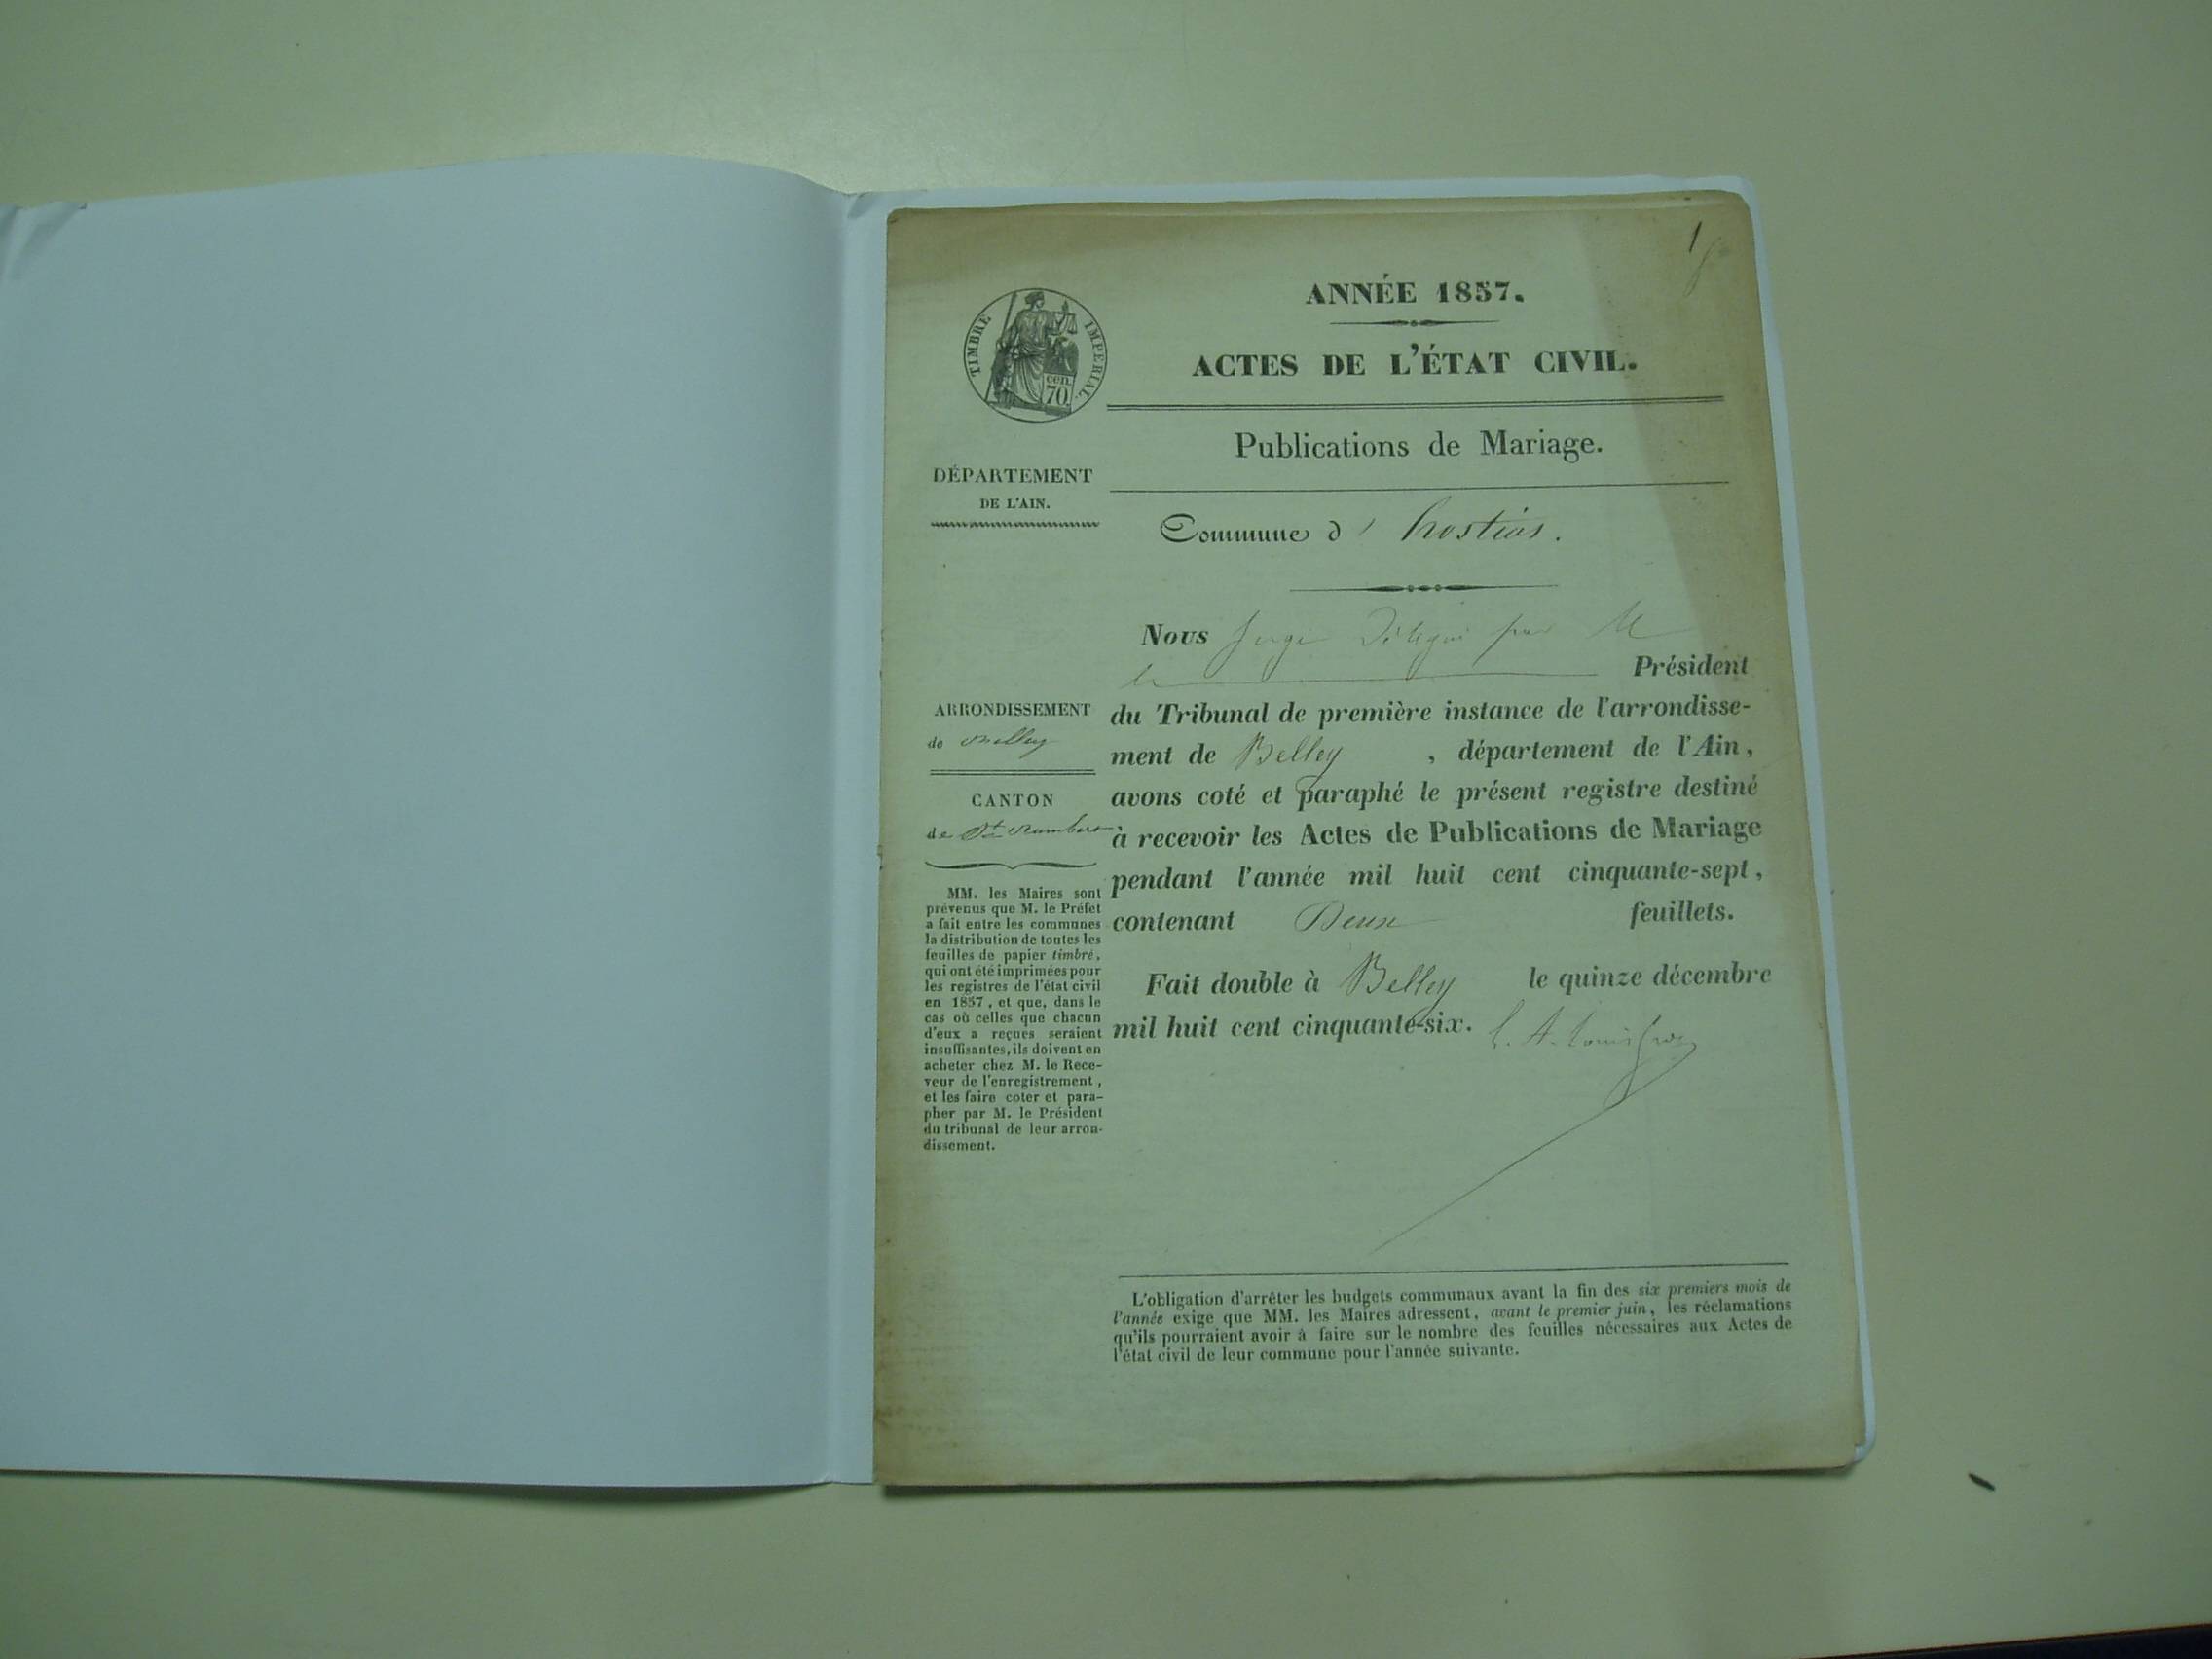 1
ANNÉE 1857.
TIMBRE IMPERIAL.
cen.
70.
ACTES DE L'ÉTAT CIVIL.
Publications de Mariage.
DÉPARTEMENT
DE L'AIN.
Commune d' hostias.
Nous Juge Délégué par M
le Président
du Tribunal de première instance de l'arrondisse-
ment de Belley , département de l'Ain,
avons coté et paraphé le présent registre destiné
à recevoir les Actes de Publications de Mariage
pendant l'année mil huit cent cinquante-sept,
contenant Deux feuillets.
Fait double à Belley le quinze décembre
mil huit cent cinquante-six.
ARRONDISSEMENT
de Belley
CANTON
de St Rambert
MM. les Maires sont
prévenus que M. le Préfet
a fait entre les communes
la distribution de toutes les
feuilles de papier timbré,
qui ont été imprimées pour
les registres de l'état civil
en 1857, et que, dans le
cas où celles que chacun
d'eux a reçues seraient
insuffisantes, ils doivent en
acheter chez M. le Rece-
veur de l'enregistrement,
et les faire coter et para-
pher par M. le Président
du tribunal de leur arron-
dissement.
L'obligation d'arrêter les budgets communaux avant la fin des six premiers mois de
l'année exige que MM. les Maires adressent, avant le premier juin, les réclamations
qu'ils pourraient avoir à faire sur le nombre des feuilles nécessaires aux Actes de
l'état civil de leur commune pour l'année suivante.